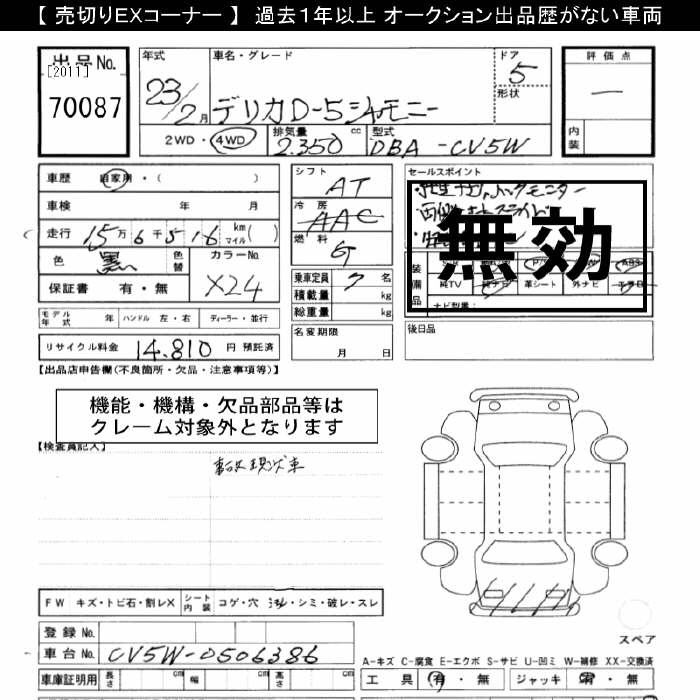 【 売切りEXコーナー 】 過去1年以上 オークション出品歴がない車両
出品No.
[2011]
70087
年式
23/2月
車名・グレード
デリカD-5シャモニー
ドア
5
形状
評価点
—
内装
2WD・4WD
排気量
2.350 cc
型式
DBA -CV5W
車歴 自家用・( )
車検 年 月
走行 15万6千516 km マイル( )
色 黒 色替
カラーNo.
X24
保証書 有・無
シフト
AT
冷房
AAC
燃料
G
乗車定員 7名
積載量 kg
総重量 kg
セールスポイント
無効
装備品
純TV 革シート 外ナビ
ナビ型番:
モデル年式 年 ハンドル 左・右 ディーラー・並行
リサイクル料金 14.810 円 預託済
名変期限
月 日
後日品
【出品店申告欄(不良箇所・欠品・注意事項等)】
機能・機構・欠品部品等は
クレーム対象外となります
【検査員記入】
事故現状車
FW キズ・トビ石・割レX シート内装 コゲ・穴 ・シミ・破レ・スレ
スペア
登録No.
車台No. CV5W-0506386
A-キズ C-腐食 E-エクボ S-サビ U-凹ミ W-補修 XX-交換済
車庫証明用 長さ cm 幅 cm 高さ cm
工具 有・無 ジャッキ 有・無